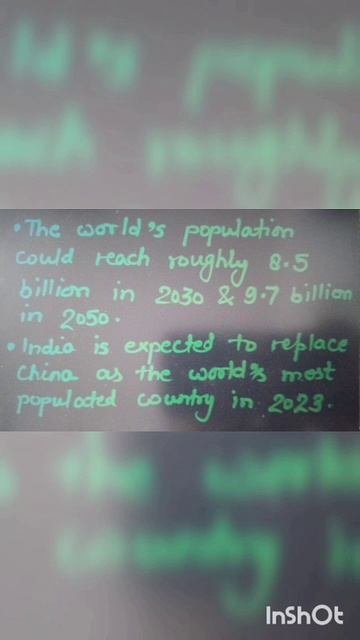 • The world's population
could reach roughly 8.5
billion in 2030 & 9.7 billion
in 2050.
• India is expected to replace
China as the world's most
populated country in 2023.
InShOt